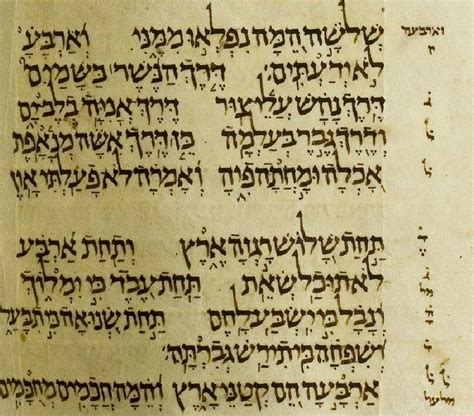 שְׁלֹשָׁה הֵמָּה נִפְלְאוּ מִמֶּנִּי וְאַרְבָּעָ
לֹא יְדַעְתִּים׃ דֶּרֶךְ הַנֶּשֶׁר בַּשָּׁמַיִם
דֶּרֶךְ נָחָשׁ עֲלֵי צוּר דֶּרֶךְ אֳנִיָּה בְלֶב יָם
וְדֶרֶךְ גֶּבֶר בְּעַלְמָה כֵּן דֶּרֶךְ אִשָּׁה מְנָאָפֶת
אָכְלָה וּמָחֲתָה פִיהָ וְאָמְרָה לֹא פָעַלְתִּי אָוֶן
תַּחַת שָׁלוֹשׁ רָגְזָה אֶרֶץ וְתַחַת אַרְבַּע
לֹא תוּכַל שְׂאֵת תַּחַת עֶבֶד כִּי יִמְלוֹךְ
וְנָבָל כִּי יִשְׂבַּע לָחֶם תַּחַת שְׂנוּאָה כִּי תִבָּעֵל
וְשִׁפְחָה כִּי תִירַשׁ גְּבִרְתָּהּ׃
אַרְבָּעָה הֵם קְטַנֵּי אָרֶץ וְהֵמָּה חֲכָמִים מְחֻכָּמִים